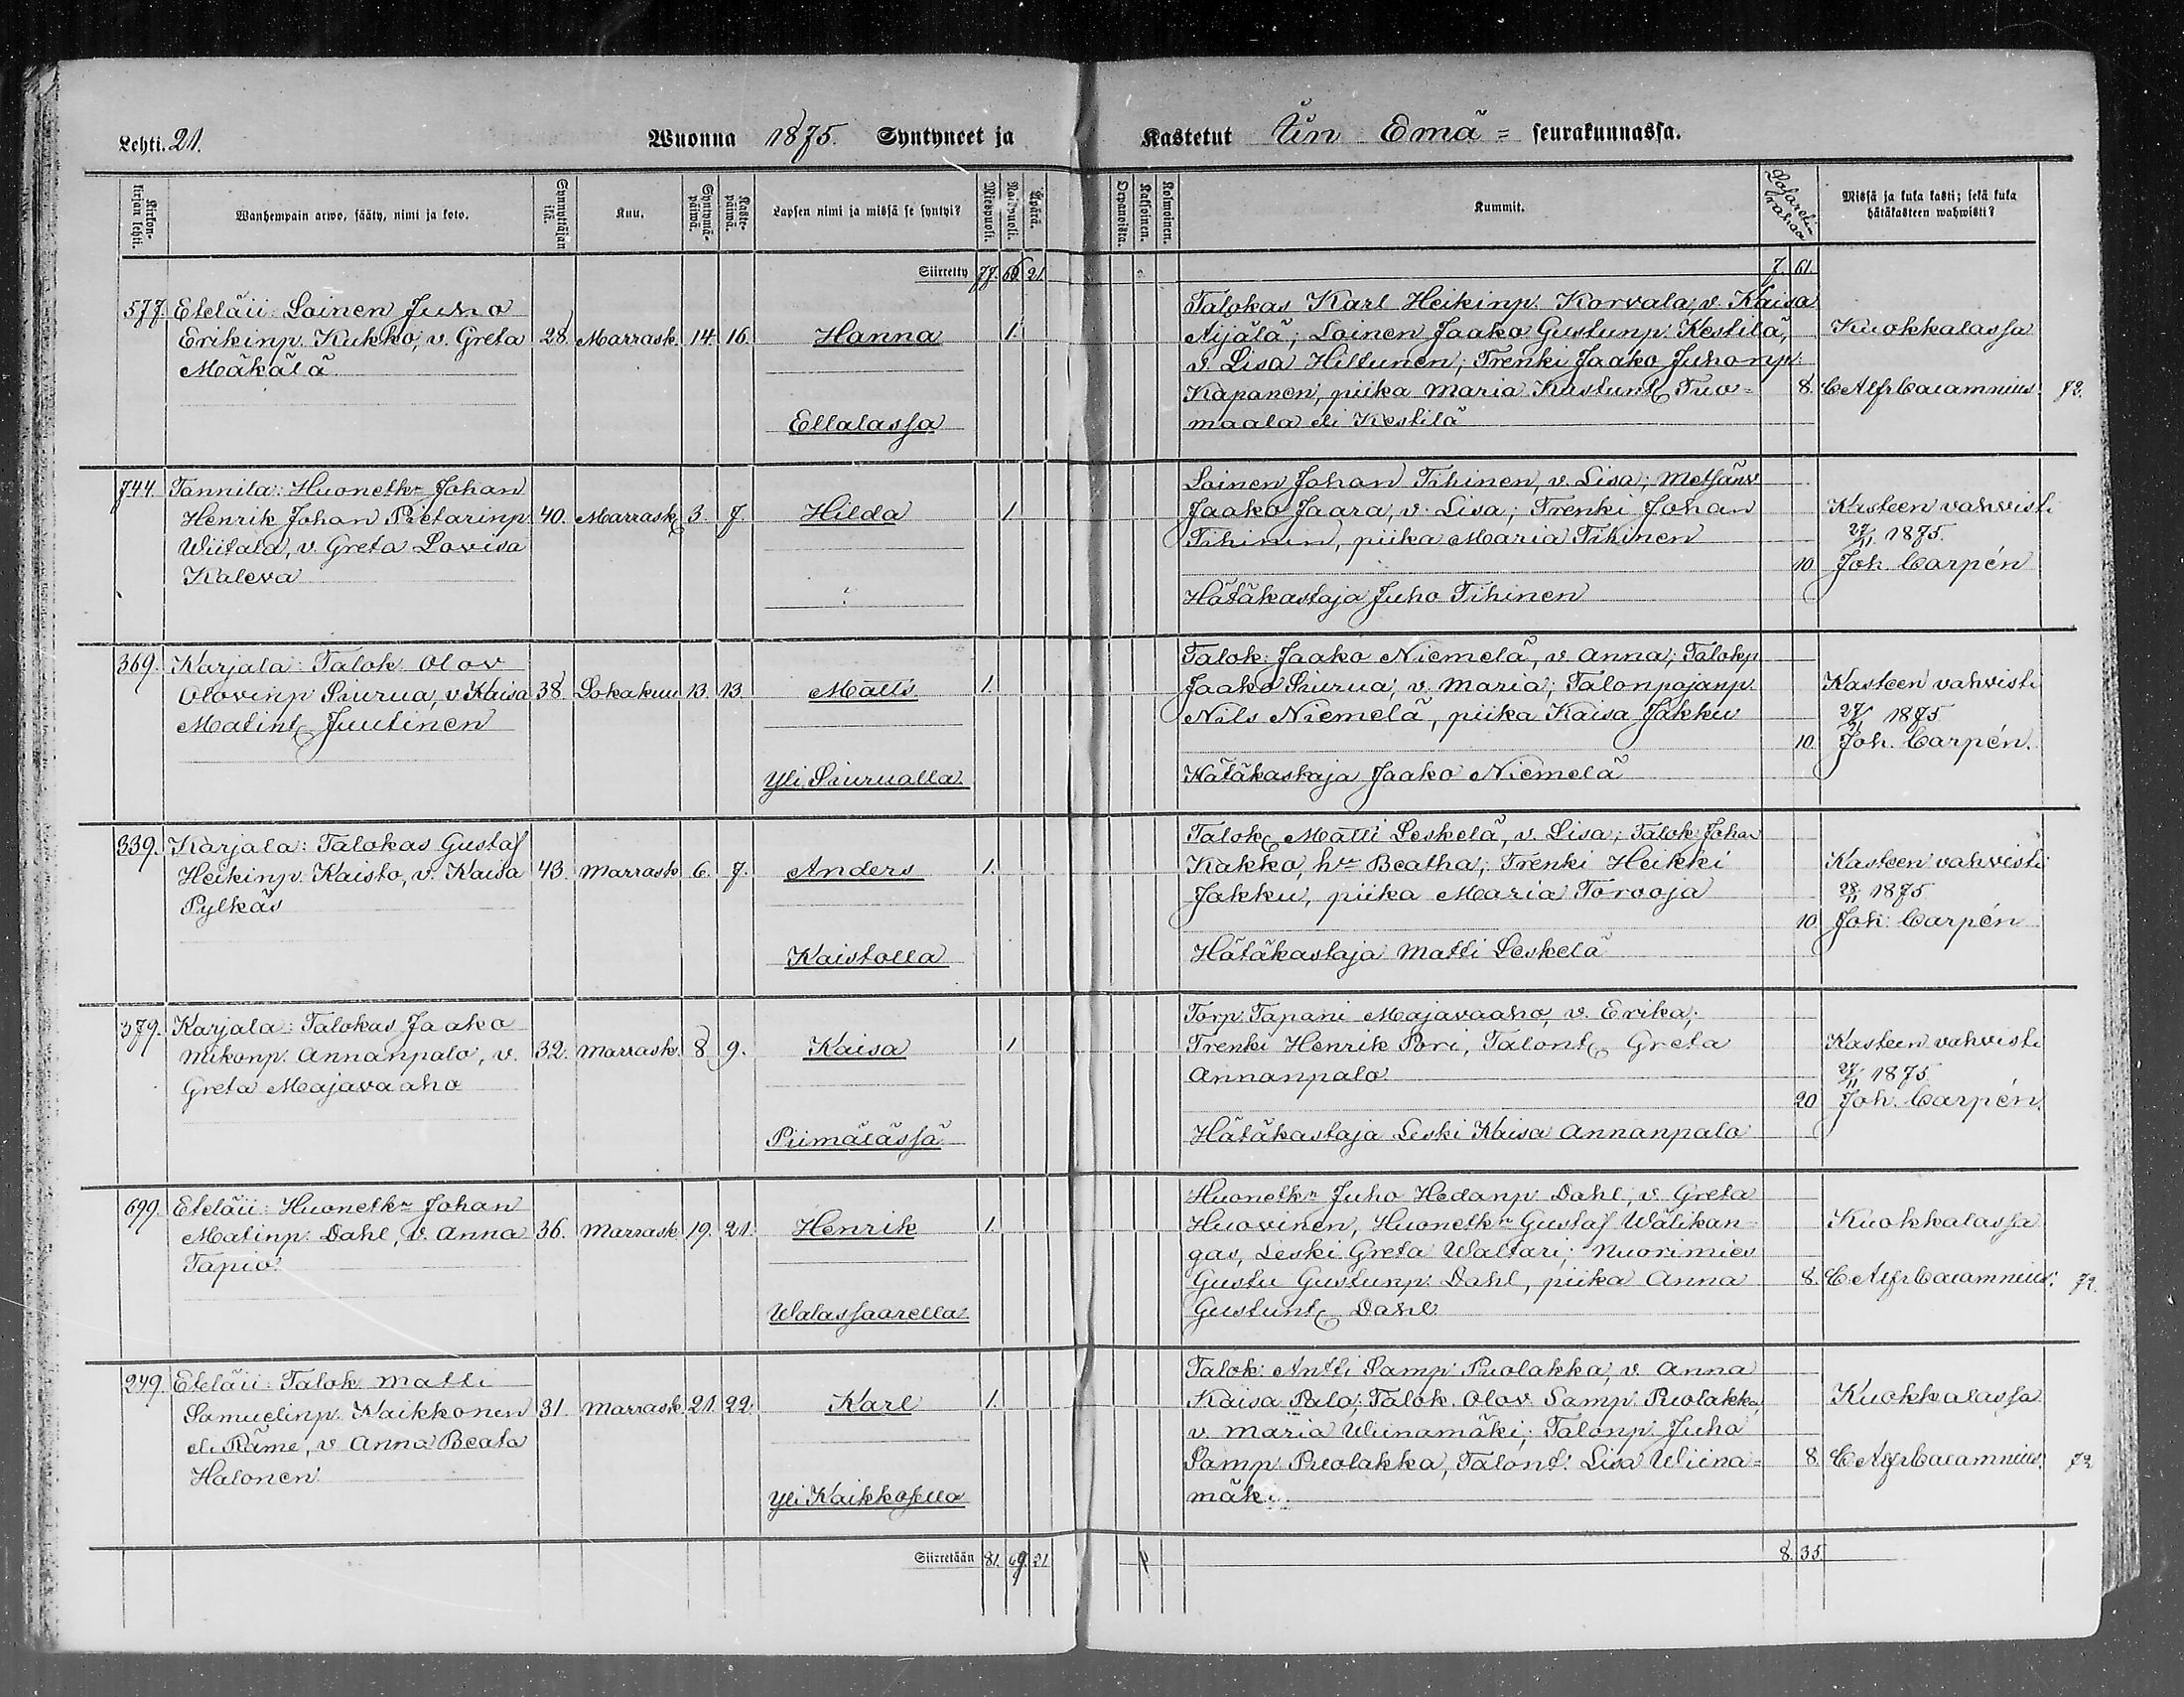 Lehti. 21.
Wuonna 1875. Syntyneet ja
Kastetut Iin Emä = seurakunnassa.
Kirkon-kirjan lehti.
Wanhempain arwo, sääty, nimi ja koto.
Synnyttäjän ikä.
Kuu.
Syntymä-päiwä.
Kaste-päiwä.
Lapsen nimi ja missä se syntyi?
Miespuoli.
Waimopuoli.
Äpärä.
Orpanoista.
Kaksoinen.
Kolmoinen.
Kummit.
Lasareti rahaa
Missä ja kuka kasti; sekä kuka hätäkasteen wahwisti?
Siirretty 77. 66 21.
7. 61.
577. Eteläii: Loinen Juho
Erikinp. Kukko, v. Greta
Mäkälä
28. Marrask. 14. 16. Hanna 1.
Ellalassa
Talokas Karl Heikinp. Korvala, v. Kaisa
Äijälä; Loinen Jaako Gustunp. Kestilä,
v. Lisa Hiltunen; Trenki Jaako Juhonp.
Kapanen, piika Maria Kustunt. Tuo=
maala eli Kestilä
8.
Kuokkalassa
C Alfr Cajamnius. 72.
744. Tannila: Huonethr Johan
Henrik Johan Pietarinp
Wiitala, v. Greta Lovisa
Kaleva
40. Marrask. 3. 7. Hilda 1.
?
Loinen Johan Tihinen, v. Lisa; Metsänv
Jaako Jaara, v. Lisa; Trenki Johan
Tihinen, piika Maria Tihinen
Hätäkastaja Juho Tihinen
10
Kasteen vahvisti
27/11 1875.
Joh. Carpén
369. Karjala: Talok. Olov
Olovinp Siurua, v Kaisa
Matint. Juutinen
38. Lokakuu 13. 13. Matti 1.
Yli Siurualla.
Talok. Jaako Niemelä, v. Anna; Talokp
Jaako Siurua, v. Maria; Talonpojanp.
Nils Niemelä, piika Kaisa Jakku
Hätäkastaja Jaako Niemelä
10
Kasteen vahvisti
27/11 1875
Joh. Carpén.
339. Karjala: Talokas Gustaf
Heikinp. Kaisto, v. Kaisa
Pylkäs
43. Marrask 6. 7. Anders 1.
Kaistolla
Talok. Matti Leskelä, v. Lisa; Talok. Johan
Kakko, hr Beatha; Trenki Heikki
Jakku, piika Maria Torvoja
Hätäkastaja Matti Leskelä
10
Kasteen vahvisti
28/11 1875
Joh. Carpén
379. Karjala: Talokas Jaako
Mikonp. Annanpalo, v.
Greta Majavaaho
32. Marrask. 8 9. Kaisa 1
Piimälässä
Torp. Tapani Majavaaho, v. Erika;
Trenki Henrik Pori, Talont. Greta
Annanpalo
Hätäkastaja Leski Kaisa Annanpalo
20
Kasteen vahvisti
27/11 1875
Joh. Carpén.
699. Eteläii: Huonethr Johan
Matinp. Dahl, v. Anna
Tapio.
36. Marrask. 19. 21. Henrik 1.
Walassaarella.
Huonethr Juho Hedanp. Dahl, v. Greta
Huovinen, Huonethr Gustaf Wälikan=
gas, Leski Greta Waltari; Nuorimies
Gustu Gustunp. Dahl, piika Anna
Gustunt. Dahl
8.
Kuokkalassa
C Alfr Cajamnius. 72.
249. Eteläii: Talok. Matti
Samuelinp. Kaikkonen
eli Räme, v. Anna Beata
Halonen
31. Marrask. 21. 22. Karl 1.
Yli Kaikkosella
Talok. Antti Samp. Puolakka, v. Anna
Kaisa Palo; Talok. Olov Samp. Puolakka,
v. Maria Wiinamäki; Talonp. Juho
Samp. Puolakka, Talont. Lisa Wiina=
mäki.
8.
Kuokkalassa
C Alfr Cajamnius. 72
Siirretään 81. 69. 21.
8. 35